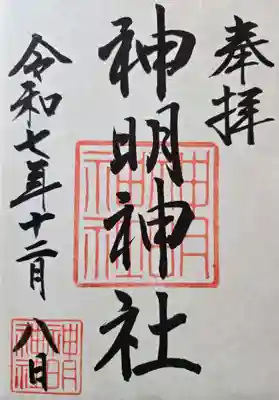 奉拝
神明神社
令和七年十二月八日
神明神社
神明神社